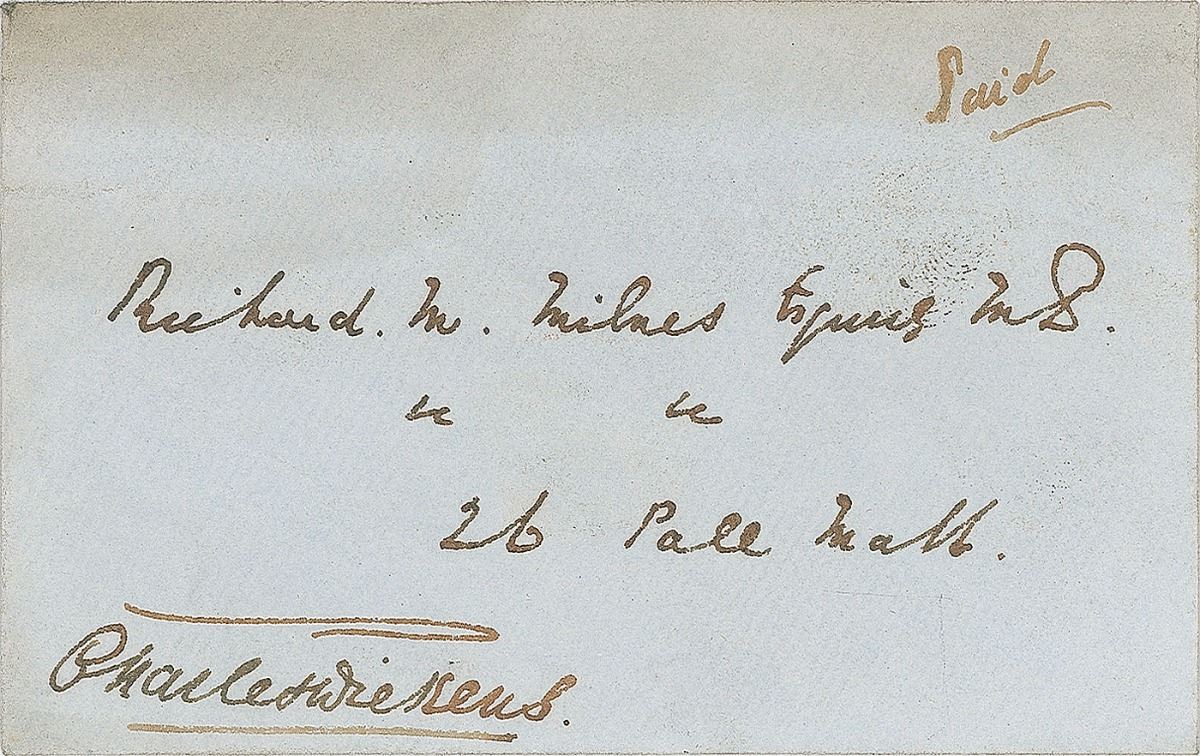 Paid
Richard. M. Milnes Esquire M P.
" "
26 Pall Mall.
Charles Dickens.